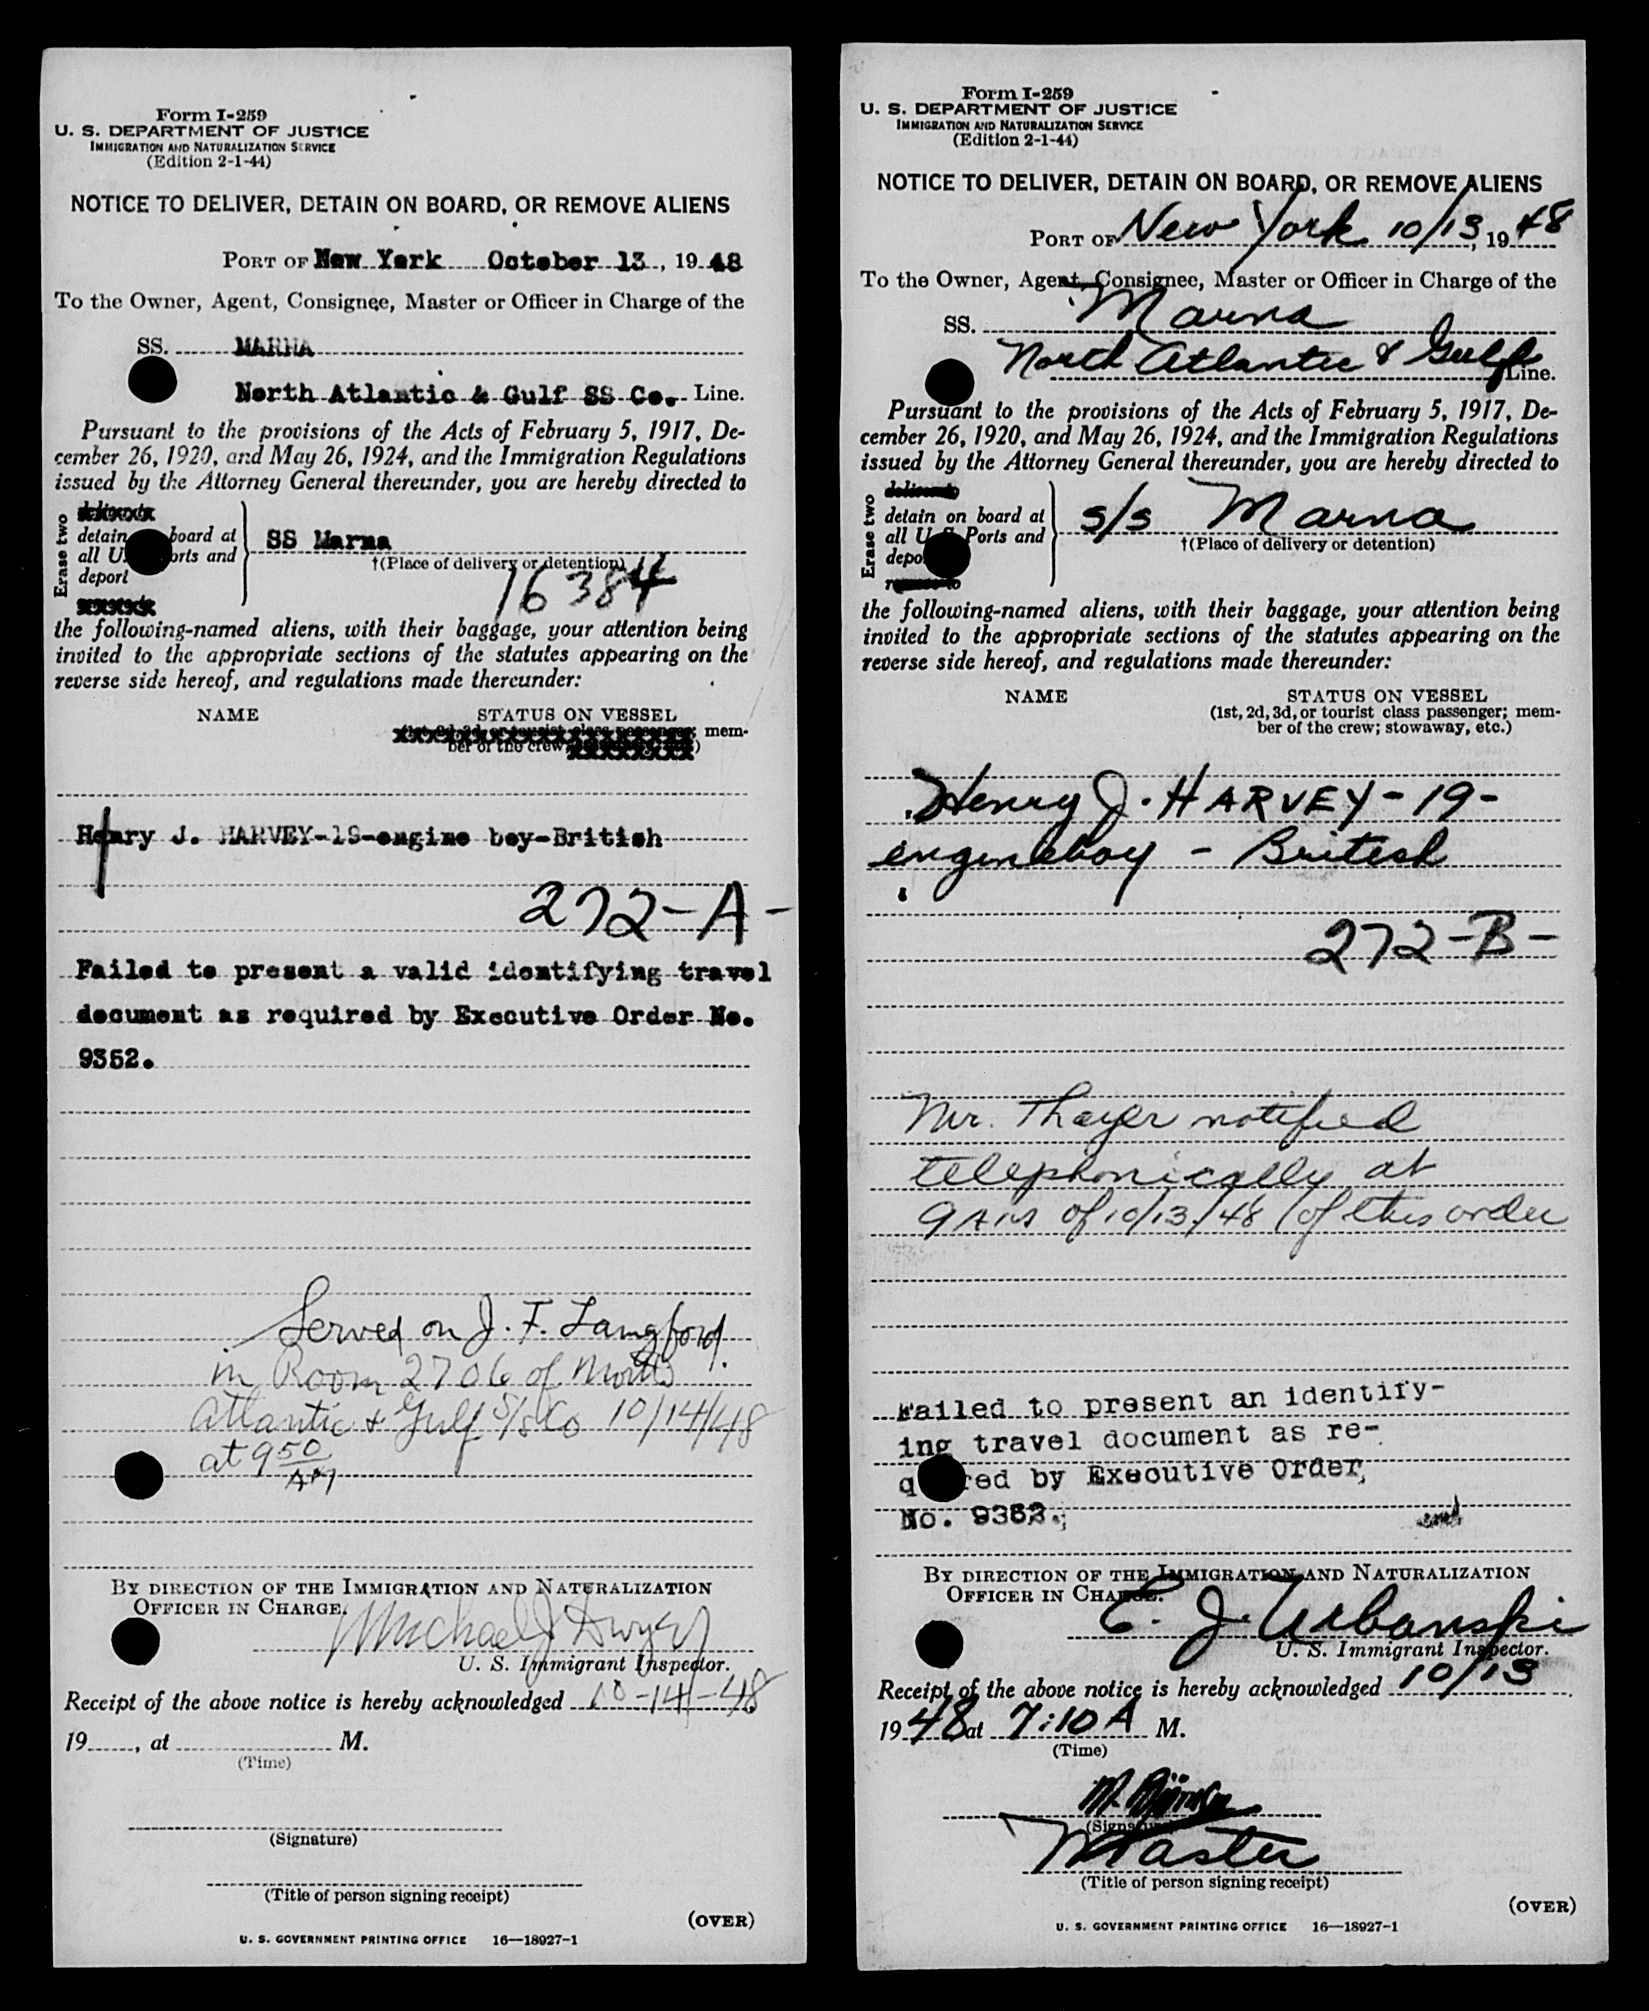 Form I-259
U. S. DEPARTMENT OF JUSTICE
IMMIGRATION AND NATURALIZATION SERVICE
(Edition 2-1-44)
NOTICE TO DELIVER, DETAIN ON BOARD, OR REMOVE ALIENS
PORT OF New York October 13, 19 48
To the Owner, Agent, Consignee, Master or Officer in Charge of the
SS. MARNA
North Atlantic & Gulf SS Co. Line.
Pursuant to the provisions of the Acts of February 5, 1917, De-
cember 26, 1920, and May 26, 1924, and the Immigration Regulations
issued by the Attorney General thereunder, you are hereby directed to
Erase two
detain board at
all U. orts and
deport
SS Marna
†(Place of delivery or detention)
16384
the following-named aliens, with their baggage, your attention being
invited to the appropriate sections of the statutes appearing on the
reverse side hereof, and regulations made thereunder:
NAME STATUS ON VESSEL
mem-
ber of the crew )
Henry J. HARVEY-19-engine boy-British
272-A-
Failed to present a valid identifying travel
document as required by Executive Order No.
9352.
Served on J. F. Langford
in Room 2706 of North
Atlantic & Gulf S/S Co 10/14/48
at 9 50 AM
BY DIRECTION OF THE IMMIGRATION AND NATURALIZATION
OFFICER IN CHARGE.
Michael J Dwyer
U. S. Immigrant Inspector.
Receipt of the above notice is hereby acknowledged 10-14-48
19......, at .................... M.
(Time)
(Signature)
(Title of person signing receipt)
(OVER)
U. S. GOVERNMENT PRINTING OFFICE 16—18927-1
Form I-259
U. S. DEPARTMENT OF JUSTICE
IMMIGRATION AND NATURALIZATION SERVICE
(Edition 2-1-44)
NOTICE TO DELIVER, DETAIN ON BOARD, OR REMOVE ALIENS
PORT OF New York 10/13, 19 48
To the Owner, Agent, Consignee, Master or Officer in Charge of the
SS. Marna
North Atlantic & Gulf Line.
Pursuant to the provisions of the Acts of February 5, 1917, De-
cember 26, 1920, and May 26, 1924, and the Immigration Regulations
issued by the Attorney General thereunder, you are hereby directed to
Erase two
detain on board at
all U. S. Ports and
depo
s/s Marna
†(Place of delivery or detention)
the following-named aliens, with their baggage, your attention being
invited to the appropriate sections of the statutes appearing on the
reverse side hereof, and regulations made thereunder:
NAME STATUS ON VESSEL
(1st, 2d, 3d, or tourist class passenger; mem-
ber of the crew; stowaway, etc.)
Henry J. HARVEY - 19 -
engineboy - British
272-B-
Mr. Thayer notified
telephonically at
9 AM of 10/13/48 of this order
Failed to present an identify-
ing travel document as re-
q red by Executive Order,
No. 9352.
BY DIRECTION OF THE IMMIGRATION AND NATURALIZATION
OFFICER IN CHARGE.
E. J. Urbanski
U. S. Immigrant Inspector.
Receipt of the above notice is hereby acknowledged 10/13
19 48 at 7:10 A M.
(Time)
(Signature)
Master
(Title of person signing receipt)
(OVER)
U. S. GOVERNMENT PRINTING OFFICE 16—18927-1